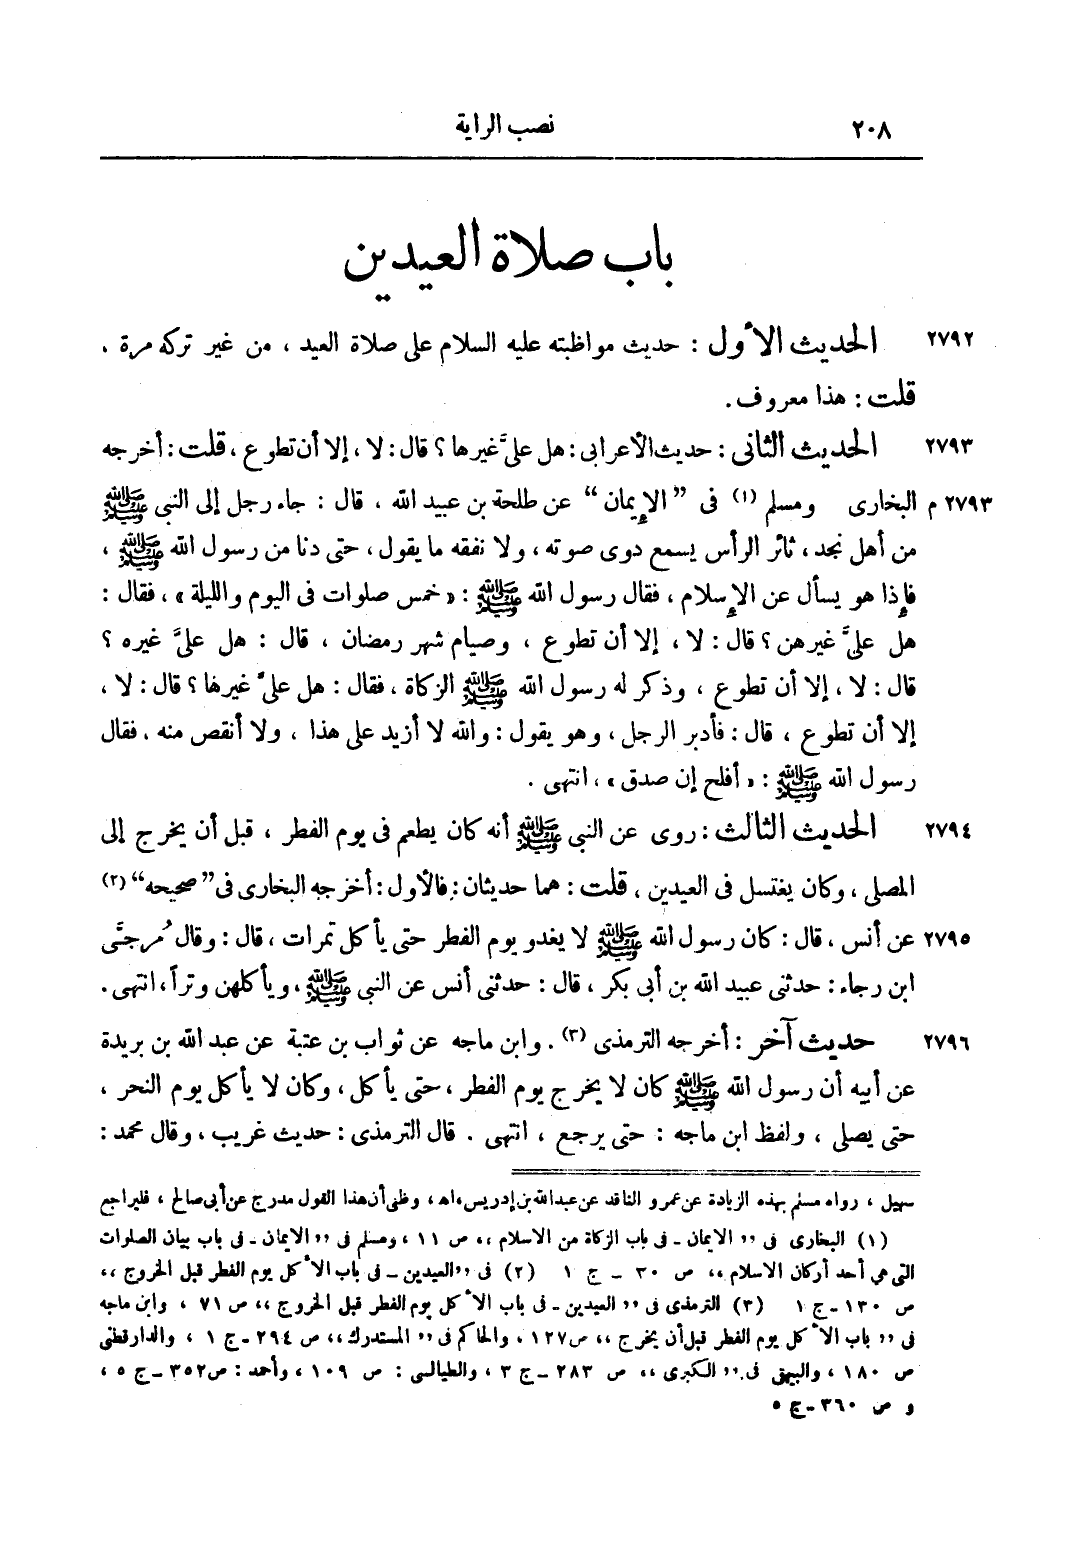 ٢٠٨ نصب الراية
باب صلاة العيدين
٢٧٩٢ الحديث الأول : حديث مواظبته عليه السلام على صلاة العيد ، من غير تركه مرة ،
قلت : هذا معروف .
٢٧٩٣ الحديث الثانى : حديث الأعرابى : هل علىَّ غيرها ؟ قال : لا ، إلا أن تطوع ، قلت : أخرجه
٢٧٩٣ م البخارى ومسلم (١) فى " الإيمان " عن طلحة بن عبيد الله ، قال : جاء رجل إلى النبى ﷺ
من أهل نجد ، ثائر الرأس يسمع دوى صوته ، ولا نفقه ما يقول ، حتى دنا من رسول الله ﷺ ،
فإذا هو يسأل عن الإسلام ، فقال رسول الله ﷺ : « خمس صلوات فى اليوم والليلة » ، فقال :
هل علىَّ غيرهن ؟ قال : لا ، إلا أن تطوع ، وصيام شهر رمضان ، قال : هل علىَّ غيره ؟
قال : لا ، إلا أن تطوع ، وذكر له رسول الله ﷺ الزكاة ، فقال : هل علىَّ غيرها ؟ قال : لا ،
إلا أن تطوع ، قال : فأدبر الرجل ، وهو يقول : والله لا أزيد على هذا ، ولا أنقص منه ، فقال
رسول الله ﷺ : « أفلح إن صدق » ، انتهى .
٢٧٩٤ الحديث الثالث : روى عن النبى ﷺ أنه كان يطعم فى يوم الفطر ، قبل أن يخرج إلى
المصلى ، وكان يغتسل فى العيدين ، قلت : هما حديثان : فالأول : أخرجه البخارى فى " صحيحه " (٢)
٢٧٩٥ عن أنس ، قال : كان رسول الله ﷺ لا يغدو يوم الفطر حتى يأكل تمرات ، قال : وقال مُرجَّى
ابن رجاء : حدثنى عبيد الله بن أبى بكر ، قال : حدثنى أنس عن النبى ﷺ ، ويأكلهن وتراً ، انتهى .
٢٧٩٦ حديث آخر : أخرجه الترمذى (٣) . وابن ماجه عن ثواب بن عتبة عن عبد الله بن بريدة
عن أبيه أن رسول الله ﷺ كان لا يخرج يوم الفطر ، حتى يأكل ، وكان لا يأكل يوم النحر ،
حتى يصلى ، ولفظ ابن ماجه : حتى يرجع ، انتهى . قال الترمذى : حديث غريب ، وقال محمد :
سهيل ، رواه مسلم بهذه الزيادة عن عمرو الناقد عن عبدالله بن إدريس ، اه ، وظنى أن هذا القول مدرج عن أبى صالح ، فليراجع
(١) البخارى فى ,, الايمان ـ فى باب الزكاة من الاسلام ,, ص ١١ ، ومسلم فى ,, الايمان ـ فى باب بيان الصلوات
التى هى أحد أركان الاسلام ,, ص ٣٠ ـ ج ١ (٢) فى ,, العيدين ـ فى باب الأكل يوم الفطر قبل الخروج ,,
ص ١٣٠ ـ ج ١ (٣) الترمذى فى ,, العيدين ـ فى باب الأكل يوم الفطر قبل الخروج ,, ص ٧١ ، وابن ماجه
فى ,, باب الأكل يوم الفطر قبل أن يخرج ,, ص ١٢٧ ، والحاكم فى ,, المستدرك ,, ص ٢٩٤ ـ ج ١ ، والدارقطنى
ص ١٨٠ ، والبيهقى فى ,, الكبرى ,, ص ٢٨٣ ـ ج ٣ ، والطيالسى : ص ١٠٩ ، وأحمد : ص ٣٥٢ ـ ج ٥ ،
و ص ٣٦٠ ـ ج ٥